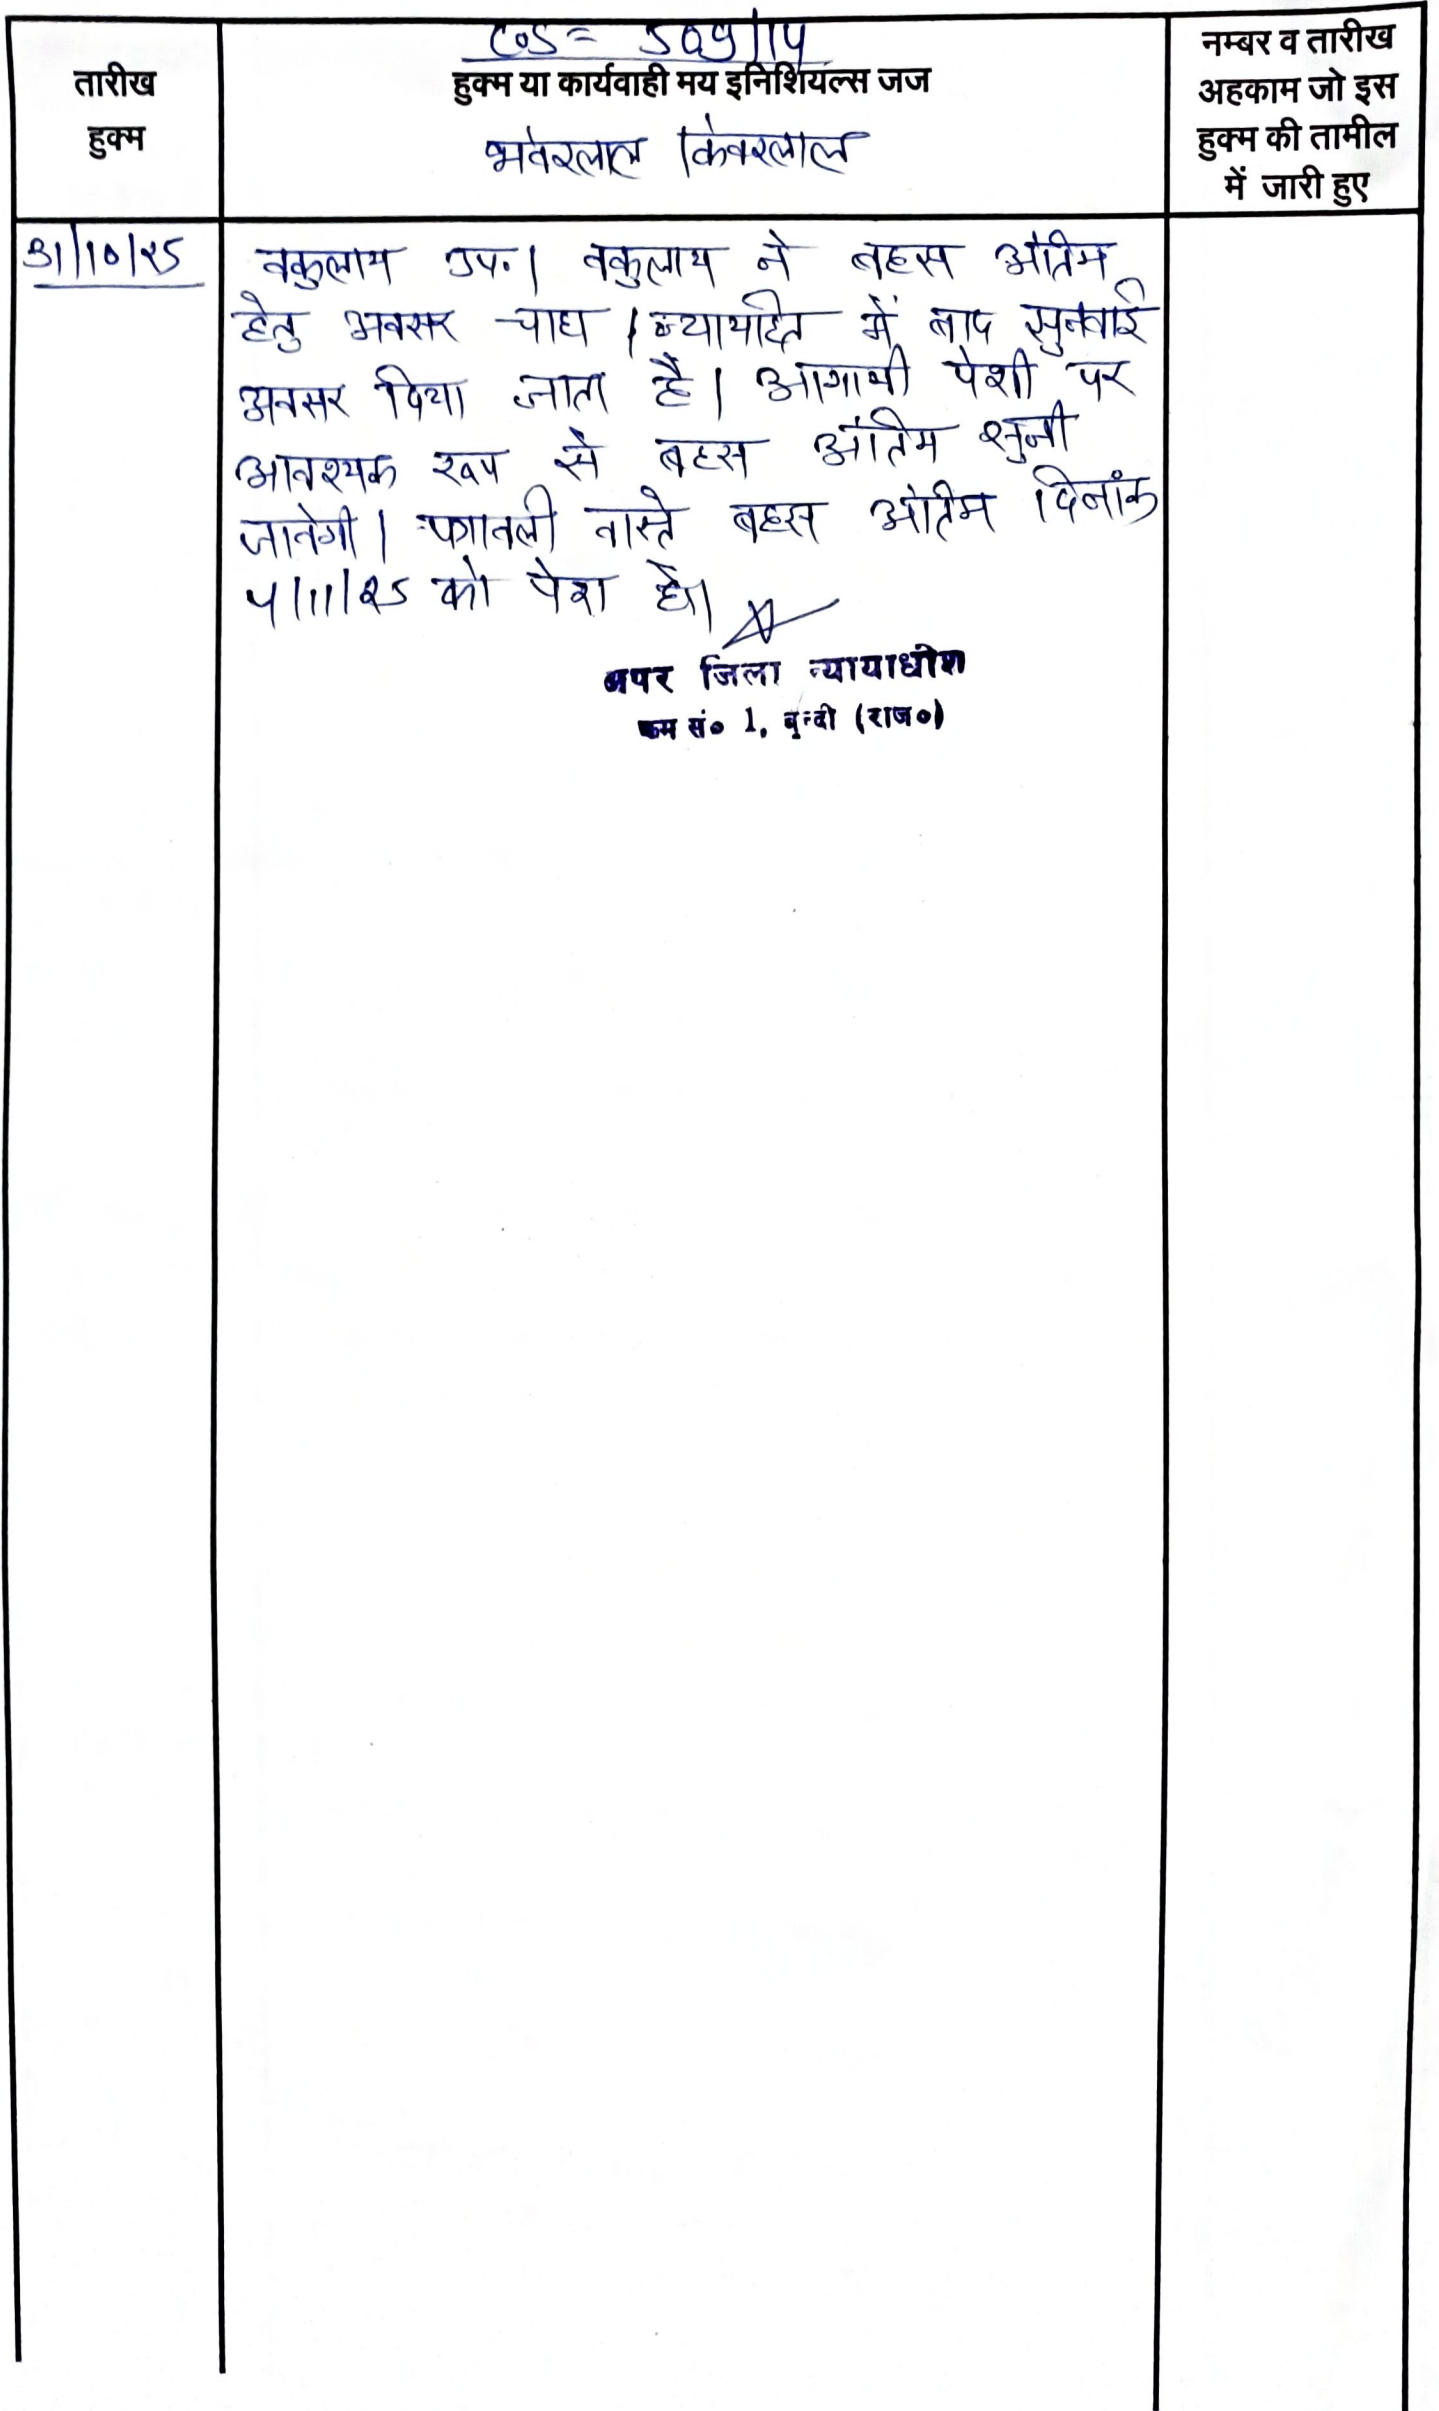 C.S = 509/14
तारीख
हुक्म
हुक्म या कार्यवाही मय इनिशियल्स जज
भवंरलाल किवरलाल
नम्बर व तारीख
अहकाम जो इस
हुक्म की तामील
में जारी हुए
31/10/25
वकुलाय उप.। वकुलाय ने बहस अंतिम
हेतु अवसर चाहा। न्यायहित में बाद सुनवाई
अवसर दिया जाता है। आगामी पेशी पर
आवश्यक रूप से बहस अंतिम सुनी
जावेगी। पत्रावली वास्ते बहस अंतिम दिनांक
4/11/25 को पेश हो।
अपर जिला न्यायाधीश
क्रम सं० 1, बून्दी (राज०)